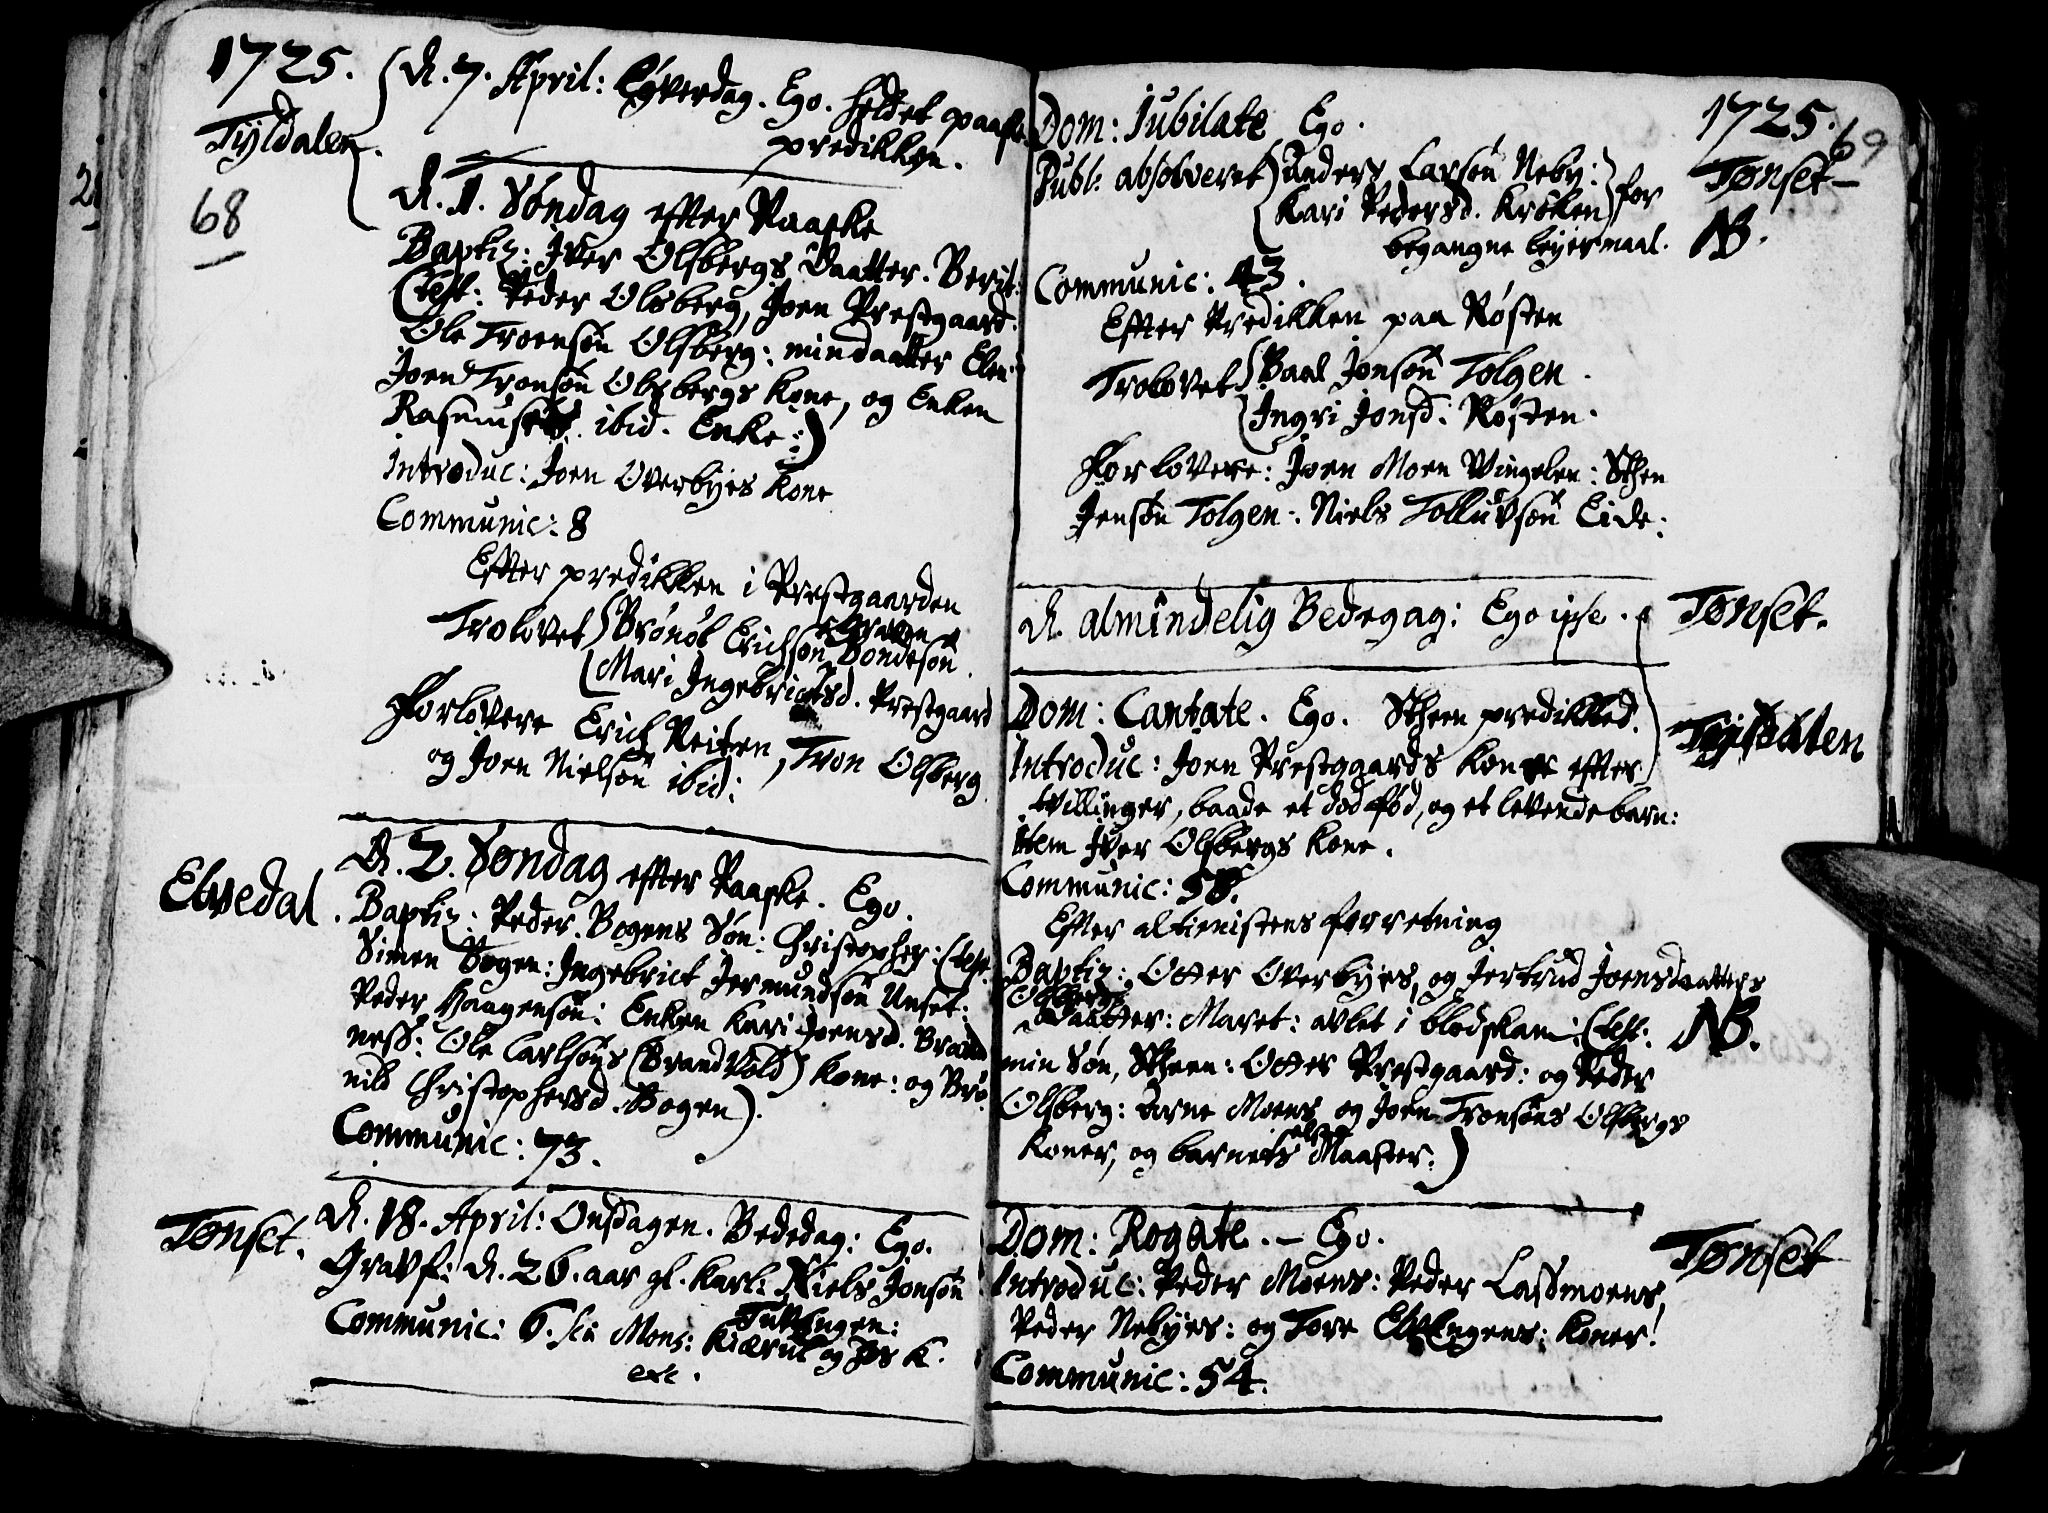 1725.
Tyldalen.
68
d. 7. April: Løverdag. Ego. holdet paaske
predikken.
d. 1. Søndag effter Paaske
Baptiz: Iver Olsbergs Daatter. Berit:
(test: Peder Olsberg, Joen Prestgaard.
Ole Troensøn Olsberg: min daatter Elen:
Joen Tronsøn Olsbergs kone, og Enken
Rasmuses ibid. Enke:)
Introduc: Joen Overbyes kone
Communic: 8
Effter predikken i Prestgaarden
Trolovet Brønöl Erichsøn Bondesøn
Mari Ingebrictsd. Prestgaard
Forlovere Erich Reiten, Tron Olsberg
og Joen Nielsøn ibid:
Elvedal.
d. 2. Søndag effter Paaske. Ego.
Baptiz: Peder Bogens Søn: Christopher: (test:
Simen Bogen: Ingebrict Jermundsøn Unset:
Peder Haagensøn: Enken Kari Joensd. Brænd
ness: Ole Carlsøns (Brandvold) kone: og Brø
nild Christophersd. Bogen).
Communic: 73.
Tønset.
d. 18. April: Onsdagen. Bededag: Ego.
Gravf: d. 26. aar gl. karl: Niels Jonsøn
Communic: 6. Mons: Kiærul og Js K.
etc.
1725.
69
Dom: Jubilate Ego.
Tønset
Publ: absolveret Anders Larsøn Neby:
Kari Pedersd. Kroken for
begangne leyermaal.
NB.
Communic: 43.
Effter Predikken paa Røsten
Trolovet Paal Jonsøn Tolgen.
Ingri Jonsd: Røsten.
Forlovere: Joen Moen Vingelen: Sthen
Jensøn Tolgen: Niels Tolluvsøn Eide:
d. almindelig Bedegag: Ego ipse.
Tønset.
Dom: Cantate. Ego. Stheen predikked.
Tyldalen
Introduc: Joen Prestgaards kone efter
tvillinger, baade et død fød, og et levende barn:
Item Iver Olsbergs kone.
Communic: 58.
Efter altienistens forretning
Baptiz: Otter Overbyes, og Jertrud Joensdaatters
Olsbergs
Daatter: Maret: avlet i blodskam: (test:
NB.
min Søn, Stheen: Otter Prestgaard: og Peder
Olsberg: Arne Moens og Joen Tronsøns Olsbergs
koner, og barnets Maaster.)
Dom: Rogate. - Ego.
Tønset
Introduc: Peder Moens: Peder Lassmoens,
Peder Nebyes: og Tore Elvengens: koner!
Communic: 54.